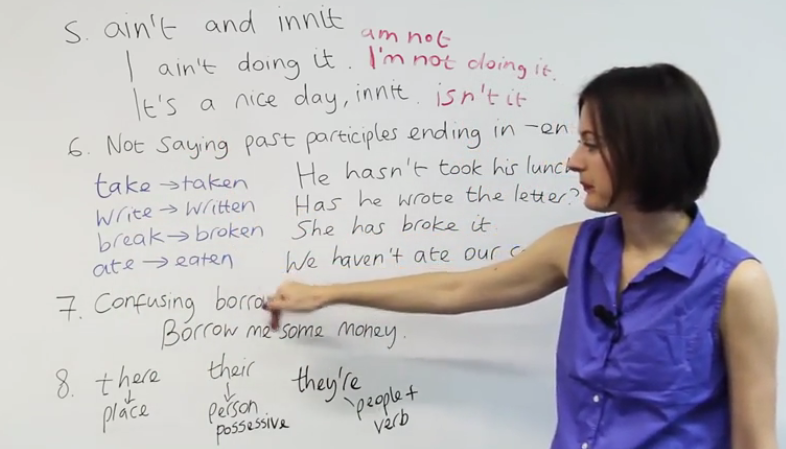 5. ain't and innit
am not
I ain't doing it. I'm not doing it.
It's a nice day, innit. isn't it
6. Not saying past participles ending in -en
take → taken He hasn't took his lunch
write → written Has he wrote the letter?
break → broken She has broke it
ate → eaten We haven't ate our
7. Confusing borrow
Borrow me some money.
8. there their they're
place person people +
possessive verb